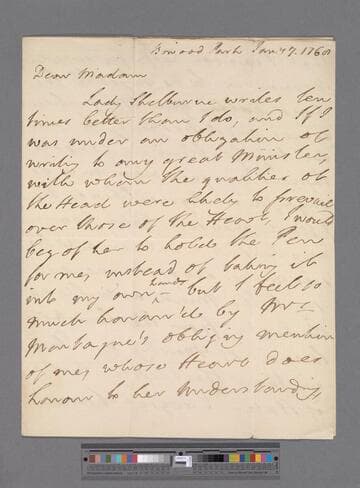 Bowood Park Jan: 7. 1760
Dear Madam
Lady Shelburne writes ten
times better than I do, and If I
was under an obligation of
writing to any great Minister,
with whom the qualities of
the Head were likely to prevail
over those of the Heart, I would
beg of her to hold the Pen
for me, instead of taking it
hands
into my own, but I feel so
much honour'd by Mrs
Montague's obliging mention
of me, whose Heart does
honour to her Understanding,